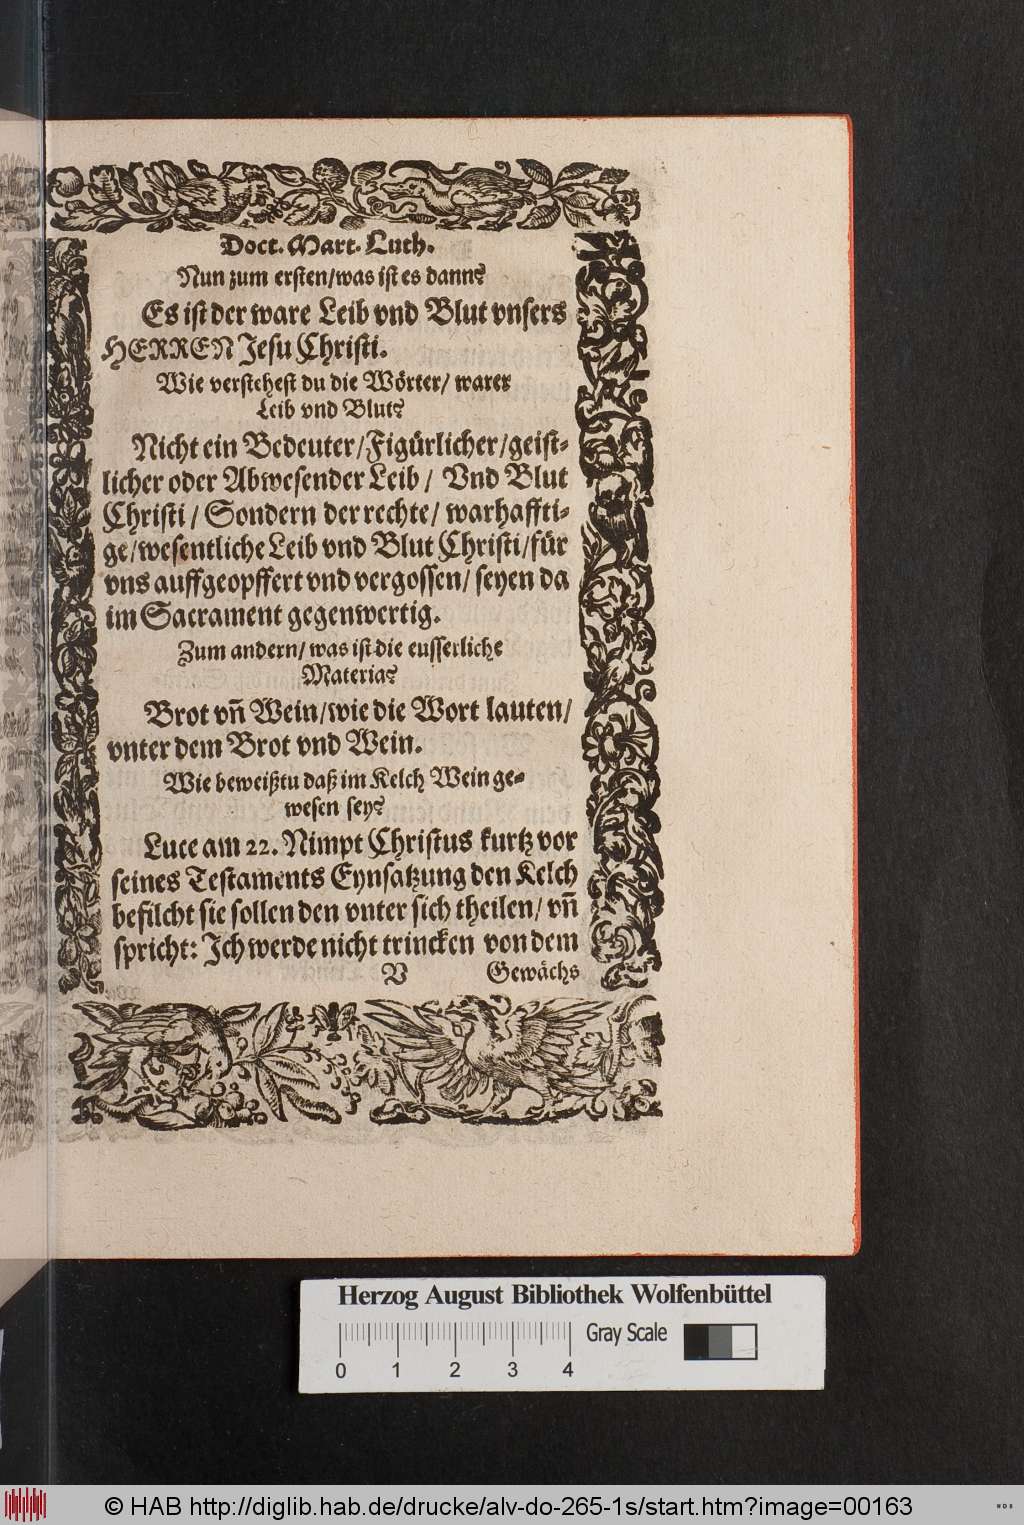 Doct. Mart. Luth.
Nun zum ersten/ was ist es dann?
Es ist der ware Leib vnd Blut vnsers
HERREN Jesu Christi.
Wie verstehest du die Wörter/ warer
Leib vnd Blut?
Nicht ein Bedeuter/ Figürlicher/ geist-
licher oder Abwesender Leib/ Vnd Blut
Christi/ Sondern der rechte/ warhaffti-
ge/ wesentliche Leib vnd Blut Christi/ für
vns auffgeopffert vnd vergossen/ seyen da
im Sacrament gegenwertig.
Zum andern/ was ist die eusserliche
Materia?
Brot vn̄ Wein/ wie die Wort lauten/
vnter dem Brot vnd Wein.
Wie beweißtu daß im Kelch Wein ge-
wesen sey?
Luce am 22. Nimpt Christus kurtz vor
seines Testaments Eynsatzung den Kelch
befilcht sie sollen den vnter sich theilen/ vn̄
spricht: Ich werde nicht trincken von dem
V Gewächs
Herzog August Bibliothek Wolfenbüttel
Gray Scale
0 1 2 3 4
© HAB http://diglib.hab.de/drucke/alv-do-265-1s/start.htm?image=00163